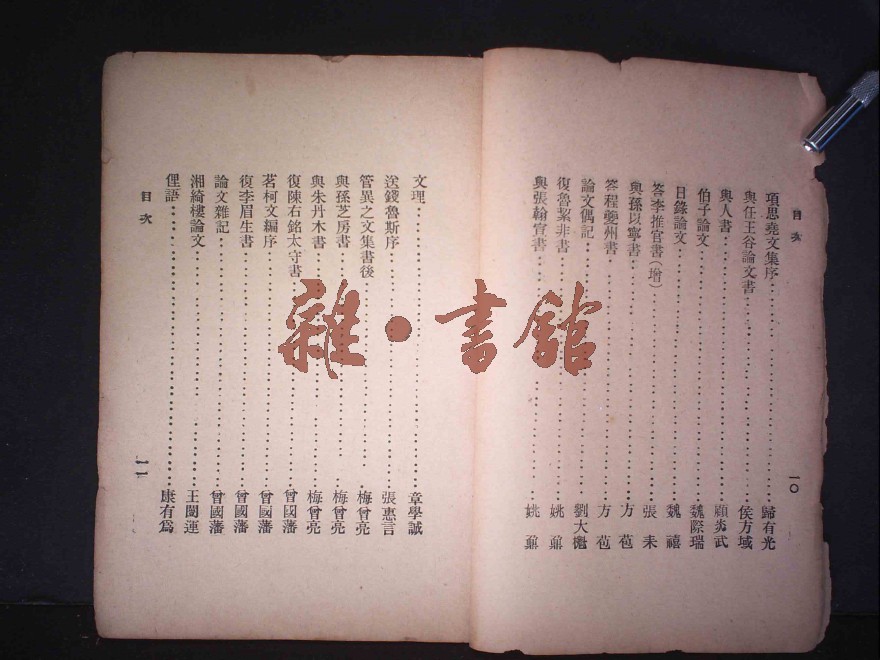 目次
項思堯文集序 歸有光
與任王谷論文書 侯方域
與人書 顧炎武
伯子論文 魏際瑞
日錄論文 魏禧
答李推官書（增） 張耒
與孫以寧書 方苞
答程夔州書 方苞
論文偶記 劉大櫆
復魯絜非書 姚鼐
與張翰宣書 姚鼐
一〇
文理 章學誠
送錢魯斯序 張惠言
管異之文集書後 梅曾亮
與孫芝房書 梅曾亮
與朱丹木書 梅曾亮
復陳右銘太守書 曾國藩
茗柯文編序 曾國藩
復李眉生書 曾國藩
論文雜記 曾國藩
湘綺樓論文 王闓運
俚語 康有為
目次
一一
雜·書館